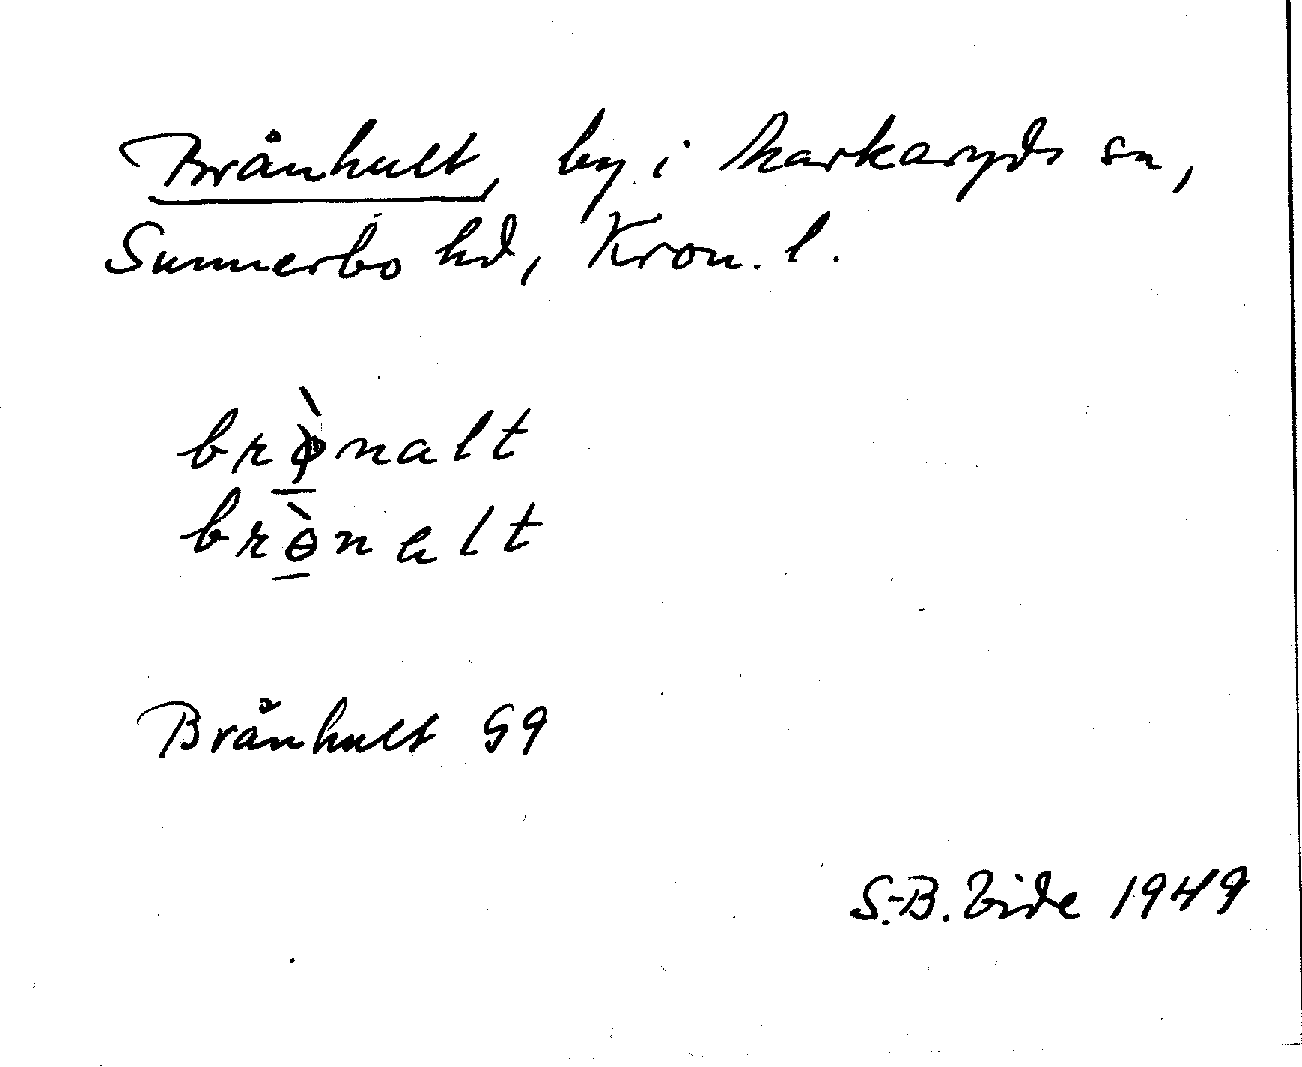 Brånhult, by i Markaryds sn,
Sunnerbo hd, Kron. l.
brø̀nalt
brɵ̀nalt
Brånhult G9
S.-B. Vide 1949